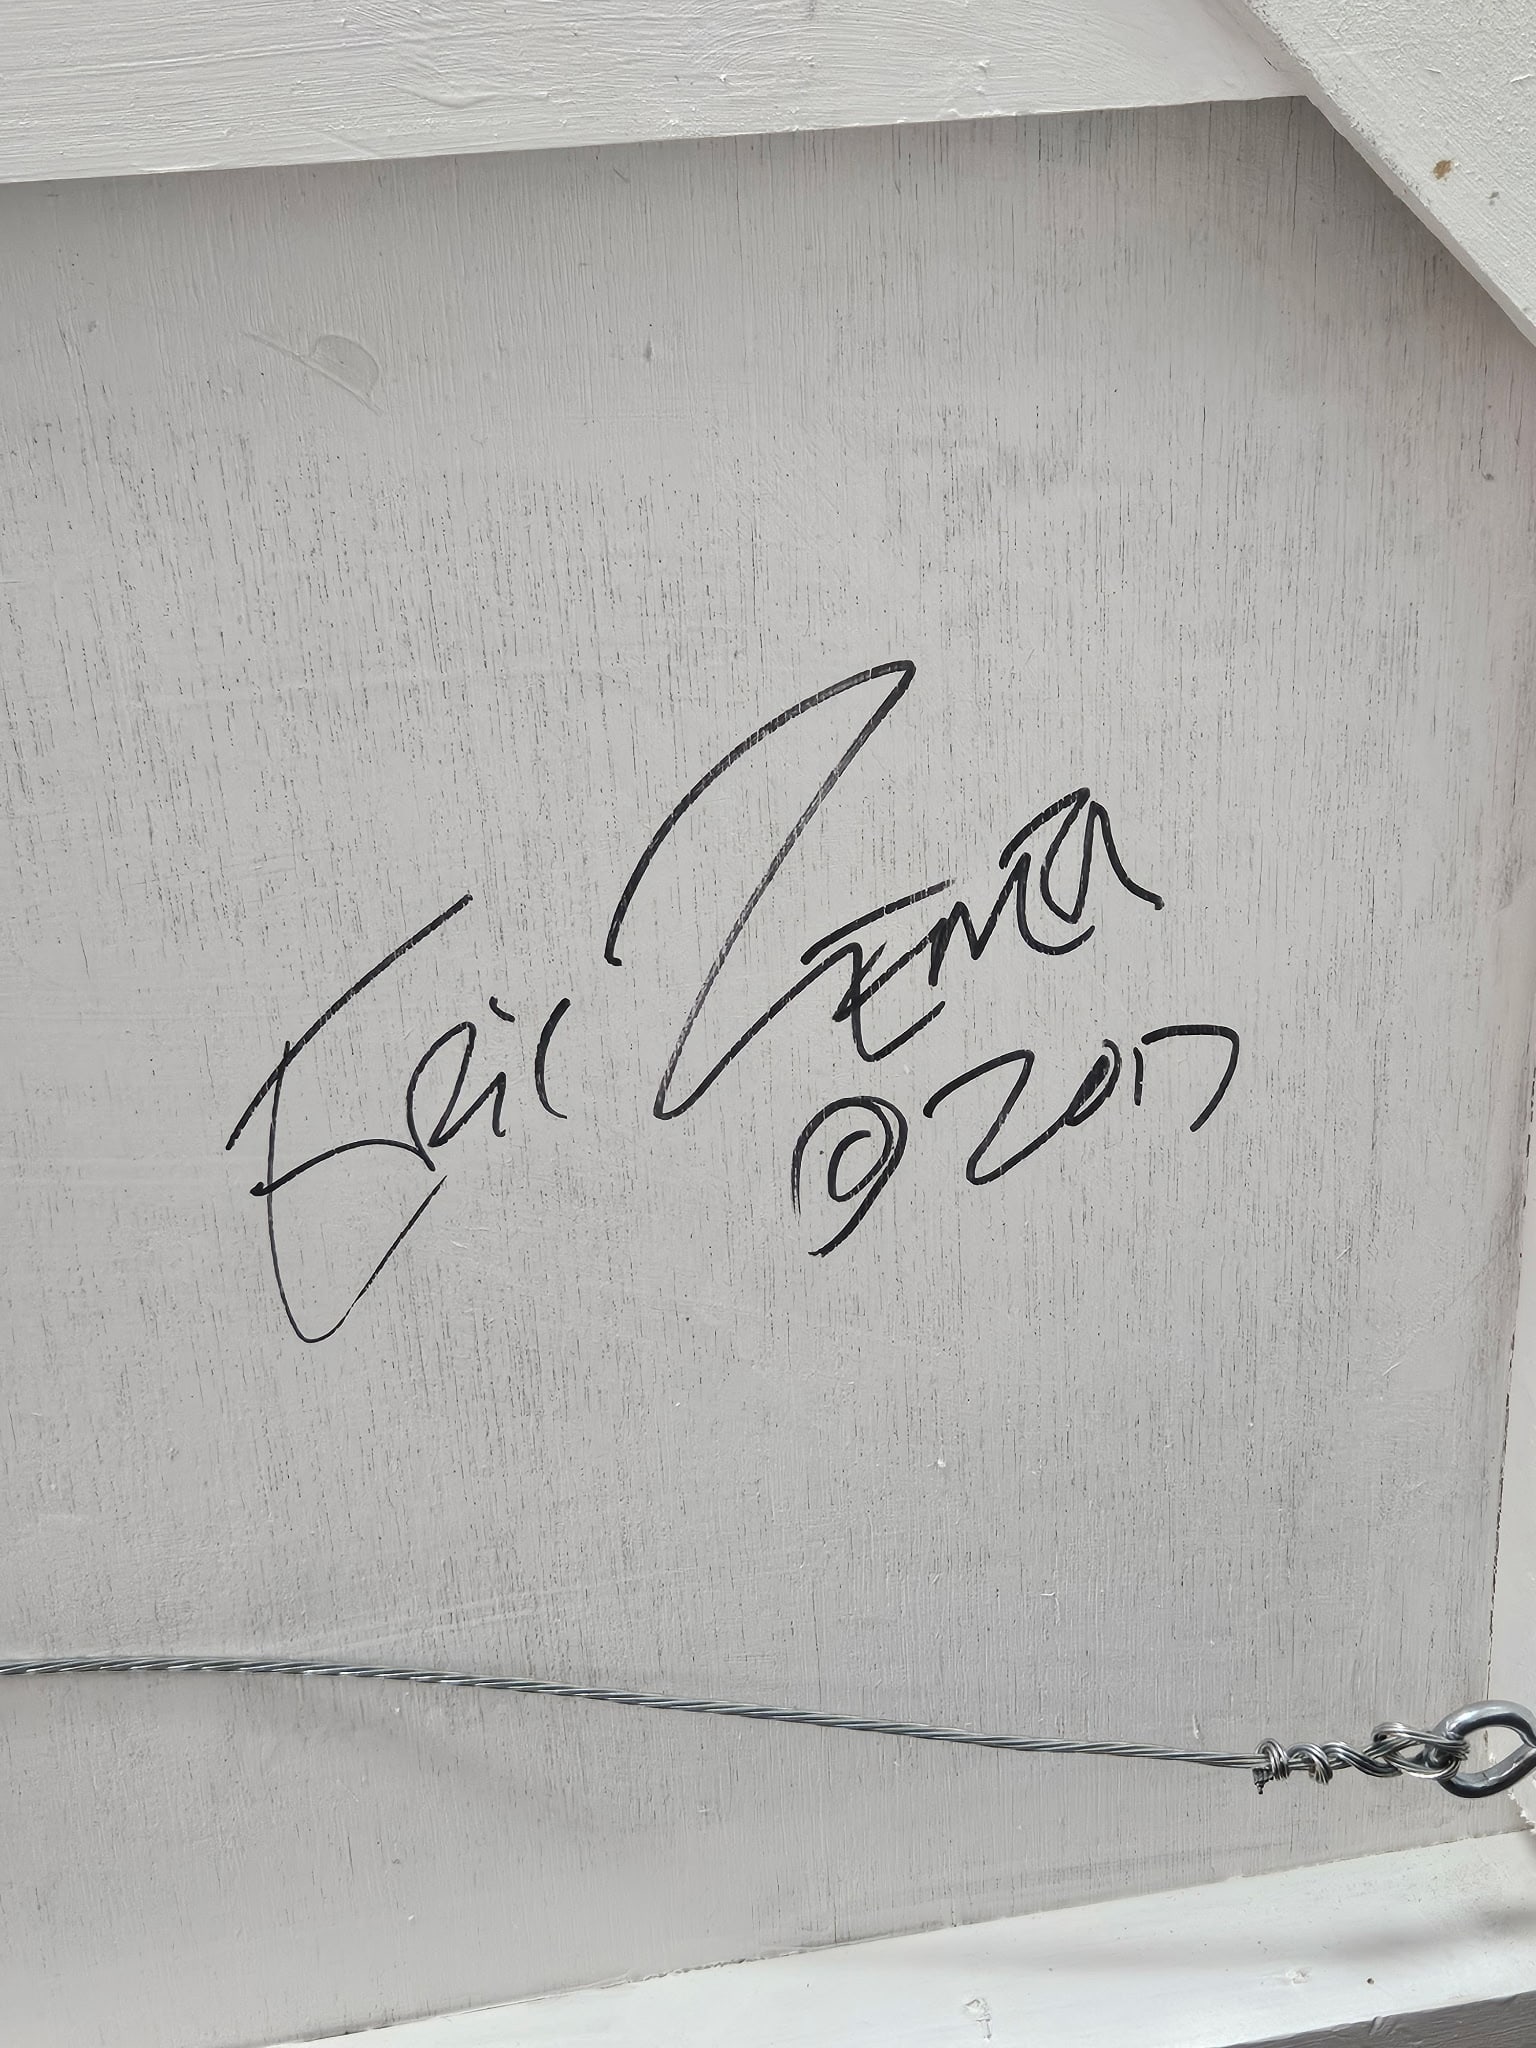 Eric Zener
© 2017